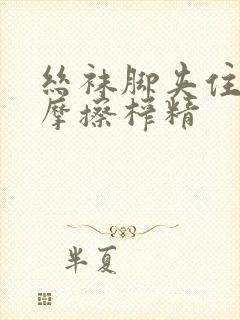 丝袜脚夹住
摩擦榨精
半夏